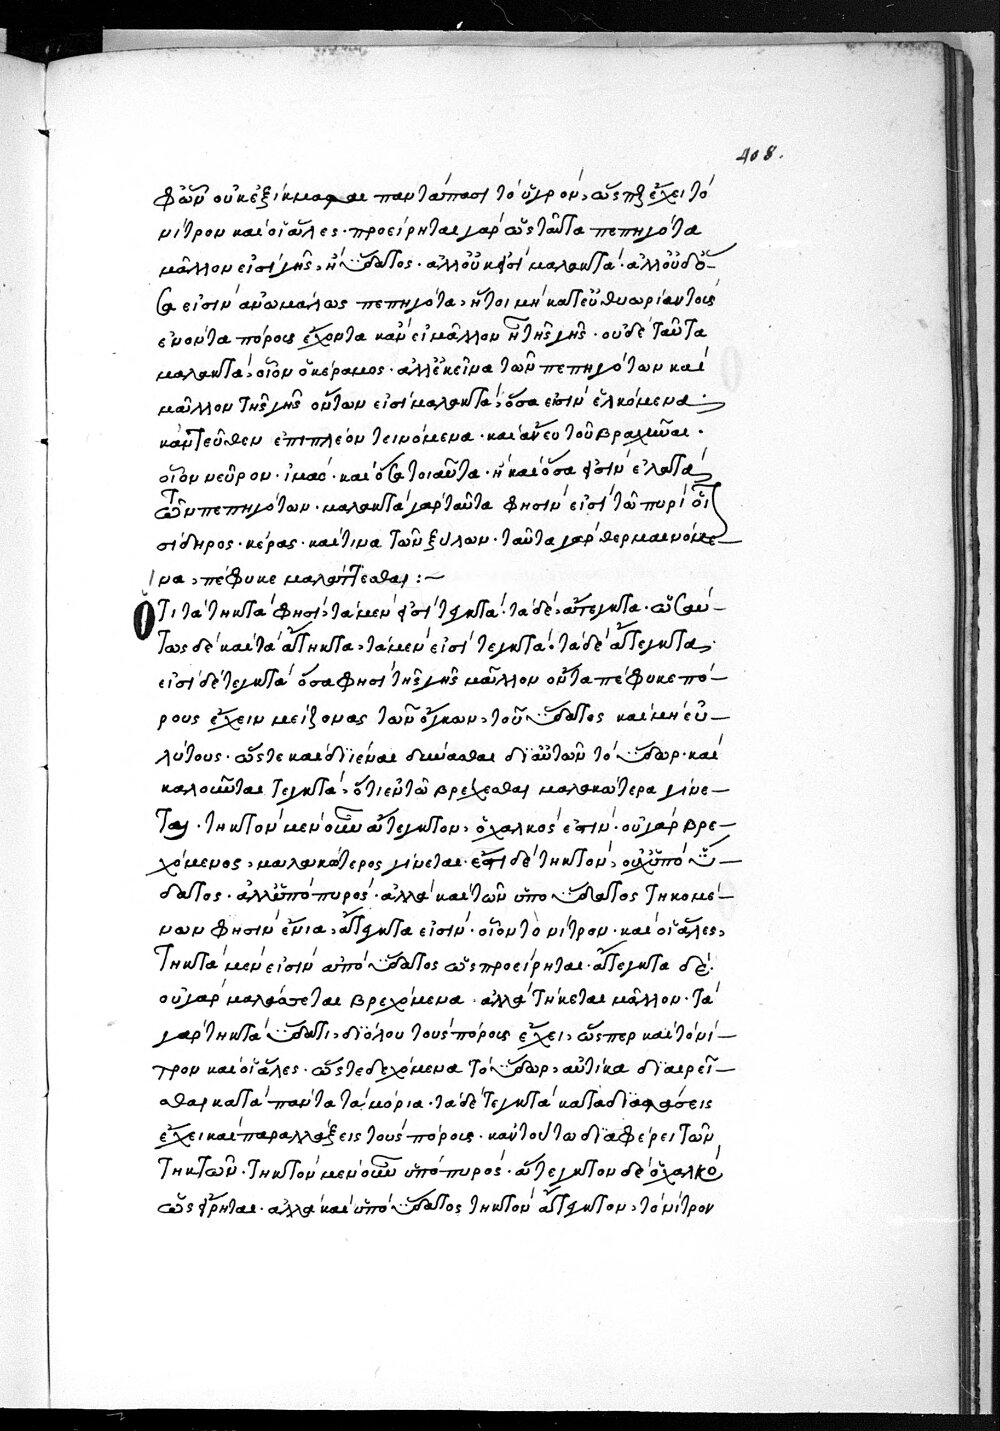 408.
φῶν οὐκ ἐξίκμασται παντάπασι τὸ ὑγρὸν, ὥσπερ ἔχει τὸ
νίτρον καὶ οἱ ἅλες· προείρηται γὰρ ὡς ταῦτα πεπηγότα
μᾶλλον εἰσὶ γῆς, ἢ ὕδατος· ἀλλ' οὐκ εἰσὶ μαλακτά· ἀλλ' οὐδ' ὅ-
σα εἰσὶν ἀνωμάλως πεπηγότα, ἤτοι μὴ κατ' εὐθυωρίαν τοὺς
ἐνόντα πόρους ἔχοντα κἂν εἰ μᾶλλον ἢ τῆς γῆς· οὐδὲ ταῦτα
μαλακτά, οἷον ὁ κέραμος· ἀλλ' ἐκεῖνα τῶν πεπηγότων καὶ
μᾶλλον τῆς γῆς ὄντων εἰσὶ μαλακτά, ὅσα εἰσὶν ἑλκόμενα·
κἀντεῦθεν ἐπιπλέον τεινόμενα· καὶ ἄνευ τοῦ βραχῆναι·
οἷον νεῦρον· ἱμάς· καὶ ὅσα τοιαῦτα· ἢ καὶ ὅσα εἰσὶν ἐλατὰ
τῶν πεπηγότων· μαλακτὰ γὰρ ταῦτα φησὶν εἰσὶ τῷ πυρὶ οἷ
σίδηρος· κέρας· καί τινα τῶν ξύλων· ταῦτα γὰρ θερμαινόμε-
να, πέφυκε μαλάττεσθαι :~
Ὅτι τὰ τηκτά φησι, τὰ μέν εἰσι τεγκτά· τὰ δὲ, ἄτεγκτα· ὡσαύ-
τως δὲ καὶ τὰ ἄτηκτα, τὰ μέν εἰσι τεγκτά· τὰ δὲ ἄτεγκτα,
εἰσὶ δὲ τεγκτὰ ὅσα φησὶ τῆς γῆς μᾶλλον ὄντα πέφυκε πό-
ρους ἔχειν μείζονας τῶν ὄγκων, τοῦ ὕδατος καὶ μὴ εὐ-
λύτους· ὥστε καὶ διϊέναι δύνασθαι δι' αὐτῶν τὸ ὕδωρ· καὶ
καλοῦνται τεγκτά, ὅτι ἐν τῷ βρέχεσθαι μαλακώτερα γίνε-
ται· τηκτὸν μὲν οὖν ἄτεγκτον, ὁ χαλκός ἐστιν· οὐ γὰρ βρε-
χόμενος, μαλακώτερος γίνεται· ἔστι δὲ τηκτὸν, οὐχ ὑπὸ ὕ-
δατος· ἀλλ' ὑπὸ πυρός· ἀλλὰ καὶ τῶν ὑπὸ ὕδατος τηκομέ-
νων φησὶν ἔνια, ἄτεγκτα εἰσίν· οἷον τὸ νίτρον· καὶ οἱ ἅλες,
τηκτὰ μέν εἰσιν ὑπὸ ὕδατος ὡς προείρηται· ἄτεγκτα δέ·
οὐ γὰρ μαλάσσεται βρεχόμενα· ἀλλὰ τήκεται μᾶλλον· τὰ
γὰρ τηκτὰ ὕδατι, δι' ὅλου τοὺς πόρους ἔχει, ὥσπερ καὶ τὸ νί-
τρον καὶ οἱ ἅλες· ὥστε δεχόμενα τὸ ὕδωρ, αὐτίκα διαιρεῖ-
σθαι κατὰ πάντα τὰ μόρια· τὰ δὲ τεγκτὰ κατὰ διαστάσεις
ἔχει καὶ παραλλάξεις τοὺς πόρους· κἀν τούτω διαφέρει τῶν
τηκτῶν· τηκτὸν μὲν οὖν ὑπὸ πυρός· ἄτεγκτον δὲ ὁ χαλκὸ
ὡς εἴρηται· ἀλλὰ καὶ ὑπὸ ὕδατος τηκτὸν ἄτεγκτον, τὸ νίτρον